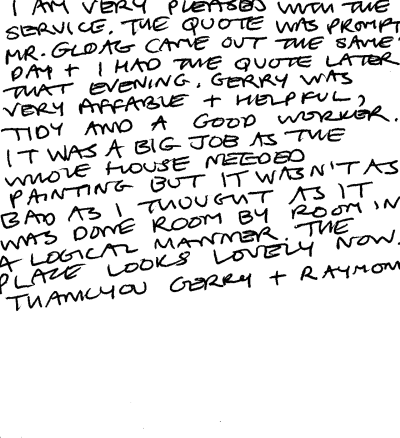 I AM VERY PLEASED WITH THE
SERVICE. THE QUOTE WAS PROMPT
MR. GLOAG CAME OUT THE SAME
DAY + I HAD THE QUOTE LATER
THAT EVENING. GERRY WAS
VERY AFFABLE + HELPFUL,
TIDY AND A GOOD WORKER.
IT WAS A BIG JOB AS THE
WHOLE HOUSE NEEDED
PAINTING BUT IT WASN'T AS
BAD AS I THOUGHT AS IT
WAS DONE ROOM BY ROOM IN
A LOGICAL MANNER. THE
PLACE LOOKS LOVELY NOW.
THANKYOU GERRY + RAYMON